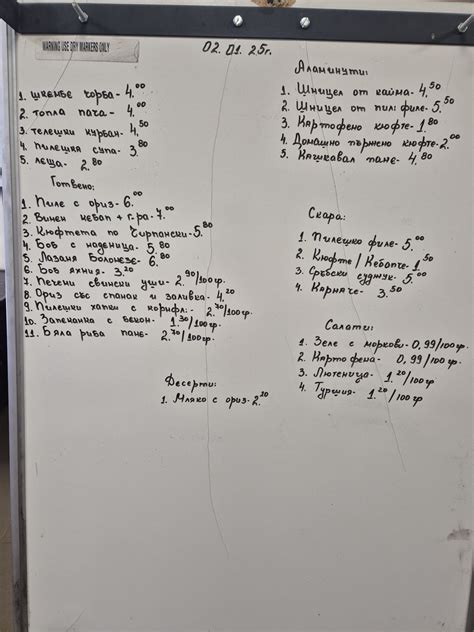 WARNING USE DRY MARKERS ONLY
02.01.25г.
1. шкембе чорба- 4.00
2. топла пача- 4.00
3. телешки курбан- 4.50
4. пилешка супа- 3.80
5. леща- 2.80
Готвено:
1. Пиле с ориз- 6.00
2. Винен кебап + г-ра- 7.00
3. Кюфтета по Чирпански- 5.80
4. Боб с наденица- 5.80
5. Лазаня Болонезе- 6.80
6. Боб яхния- 3.20
7. Печени свински уши- 2.90/100гр.
8. Ориз със спанак и заливка- 4.20
9. Пилешки хапки с корнфл.- 2.70/100гр.
10. Запеканка с бекон- 1.30/100гр.
11. Бяла риба пане- 2.70/100гр.
Десерти:
1. Мляко с ориз- 2.20
Аламинути:
1. Шницел от кайма- 4.50
2. Шницел от пил филе- 5.50
3. Картофено кюфте- 1.80
4. Домашно пържено кюфте- 2.00
5. Кашкавал пане- 4.80
Скара:
1. Пилешко филе- 5.00
2. Кюфте/Кебапче- 1.50
3. Сръбски суджук- 5.00
4. Карначе- 3.50
Салати:
1. Зеле с моркови- 0,99/100гр
2. Картофена- 0,99/100гр
3. Лютеница- 1.20/100гр
4. Туршия- 1.20/100гр